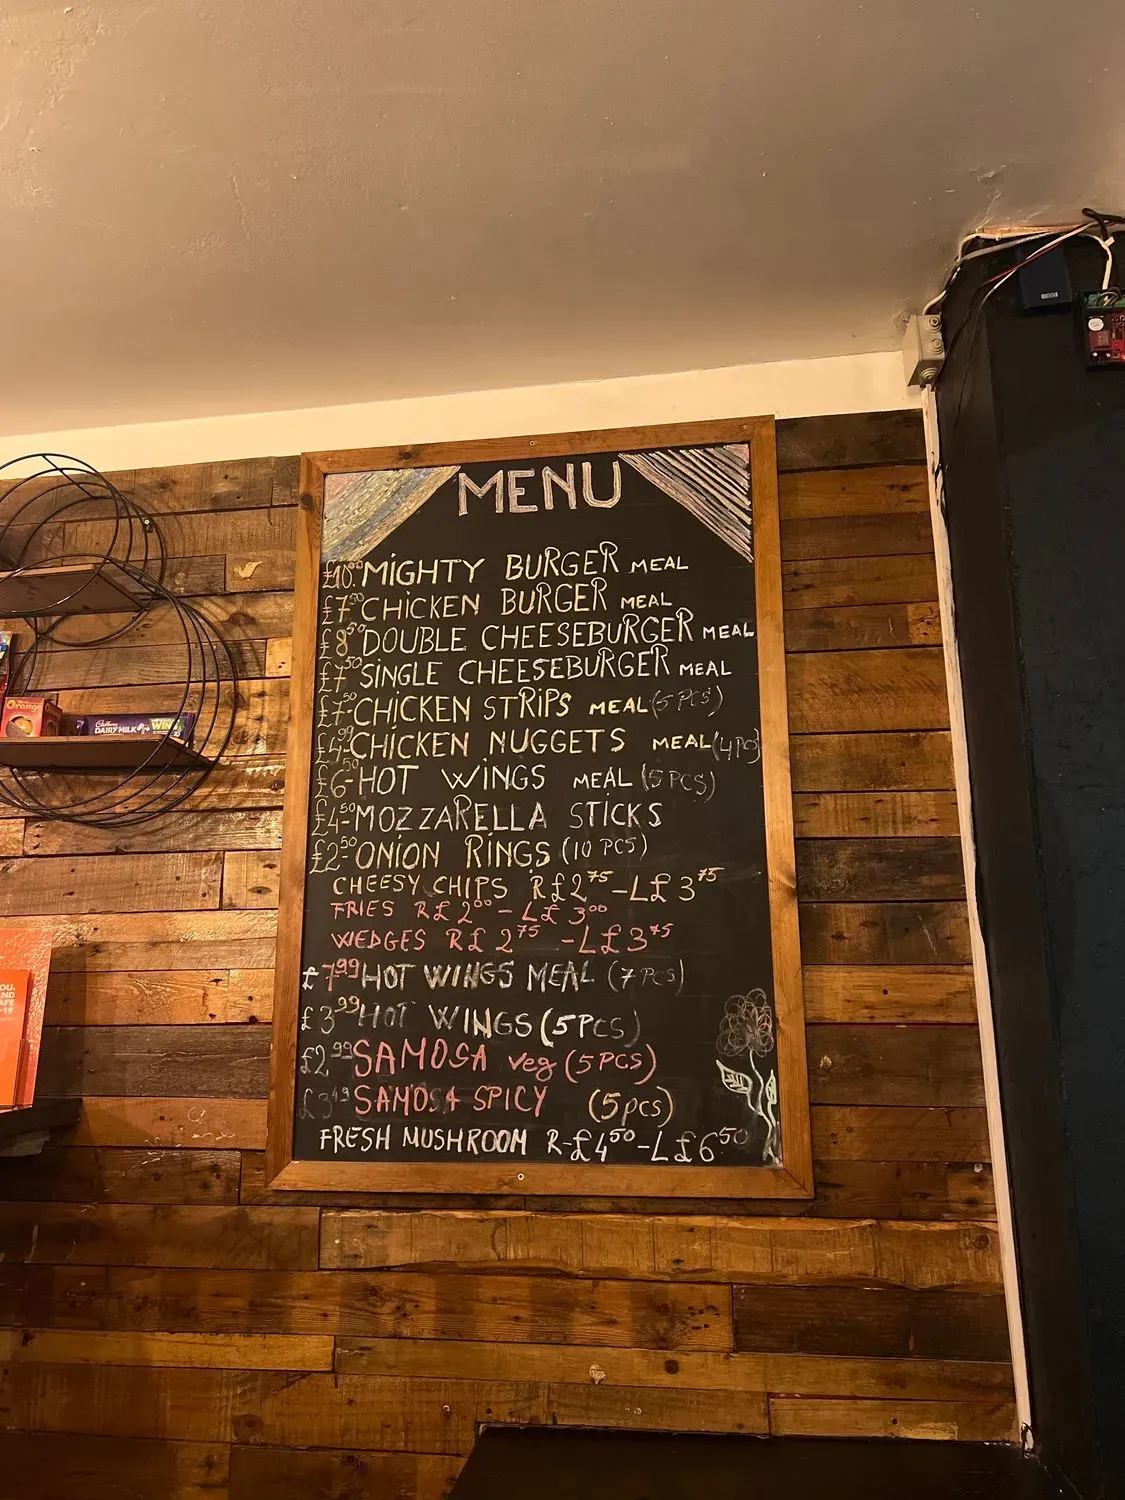 MENU
£10.00 MIGHTY BURGER MEAL
£7.50 CHICKEN BURGER MEAL
£8.50 DOUBLE CHEESEBURGER MEAL
£7.50 SINGLE CHEESEBURGER MEAL
£7.50 CHICKEN STRIPS MEAL (5 PCS)
CHICKEN NUGGETS MEAL (4 PCS)
£6.50 HOT WINGS MEAL (5 PCS)
£4.50 MOZZARELLA STICKS
£2.50 ONION RINGS (10 PCS)
CHEESY CHIPS R£2.75 - L£3.75
FRIES R£2.00 - L£3.00
WEDGES R£2.75 - L£3.75
£7.99 HOT WINGS MEAL (7 PCS)
£3.99 HOT WINGS (5PCS)
£2.99 SAMOSA veg (5 PCS)
£3.49 SAMOSA SPICY (5pcs)
FRESH MUSHROOM R-£4.50 - L£6.50
Orange
Cadbury
DAIRY MILK
WIN